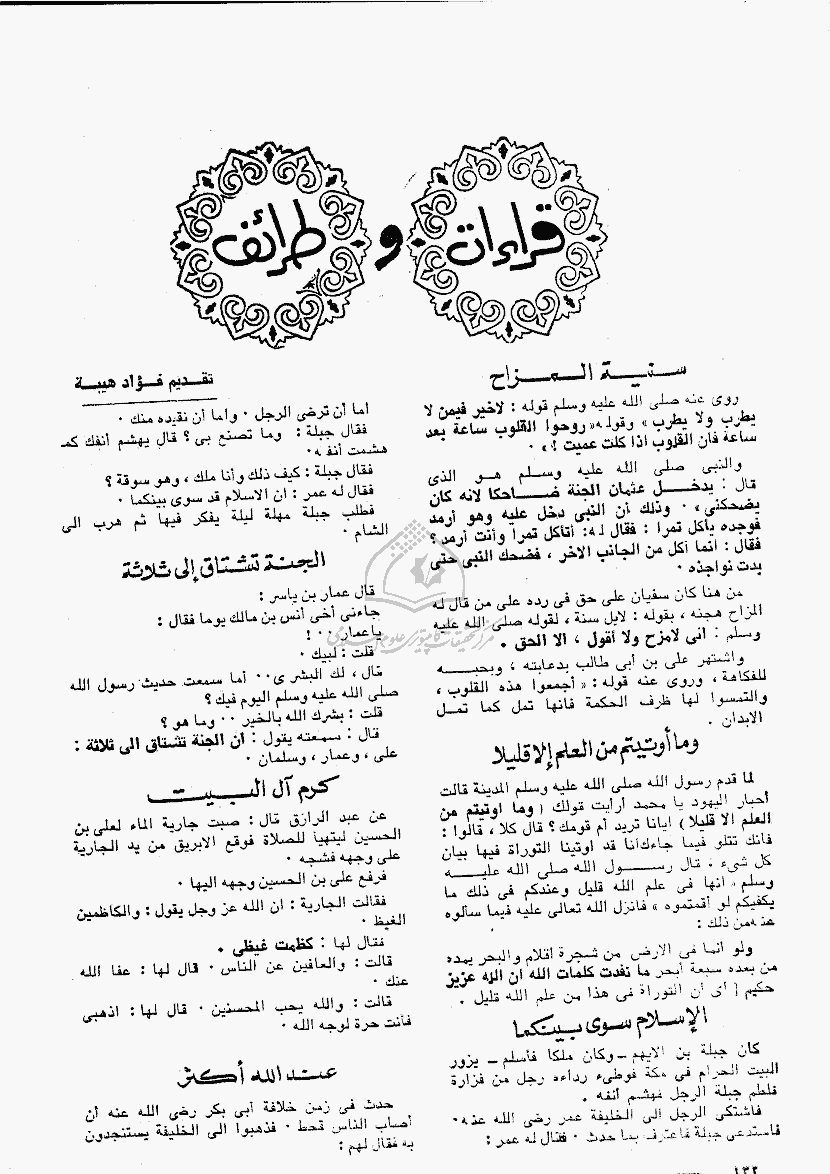 قراءات و طرائف
سنية المزاح
روى عنه صلى الله عليه وسلم قوله : لاخير فيمن لا
يطرب ولا يطرب » وقوله «روحوا القلوب ساعة بعد
ساعة فان القلوب اذا كلت عميت ! » ٠
والنبى صلى الله عليه وسلم هو الذى
قال : يدخل عثمان الجنة ضاحكا لانه كان
يضحكنى » ٠ وذلك أن النبى دخل عليه وهو أرمد
فوجده يأكل تمرا : فقال له: أتأكل تمرا وأنت أرمد ؟
فقال : انما أكل من الجانب الاخر ، فضحك النبى حتى
بدت نواجذه ٠
من هنا كان سفيان على حق فى رده على من قال له
المزاح هجنه ، بقوله : لابل سنة ، لقوله صلى الله عليه
وسلم : انى لامزح ولا أقول ، الا الحق ٠
واشتهر على بن أبى طالب بدعابته ، وبحبه
للفكاهة ، وروى عنه قوله : « أجمعوا هذه القلوب ،
والتمسوا لها ظرف الحكمة فانها تمل كما تمل
الابدان ٠
وما أوتيتم من العلم إلا قليلا
لما قدم رسول الله صلى الله عليه وسلم المدينة قالت
أحبار اليهود يا محمد أرايت قولك ( وما اوتيتم من
العلم الا قليلا ) ايانا تريد أم قومك ؟ قال كلا ، قالوا :
فانك تتلو فيما جاءك انا قد اوتينا التوراة فيها بيان
كل شىء ، قال رسول الله صلى الله عليه
وسلم « انها فى علم الله قليل وعندكم فى ذلك ما
يكفيكم لو أقمتموه » فانزل الله تعالى عليه فيما سألوه
عنه من ذلك :
ولو انما فى الارض من شجرة اقلام والبحر يمده
من بعده سبعة أبحر ما نفدت كلمات الله ان الله عزيز
حكيم [ أى أن التوراة فى هذا من علم الله قليل ٠
الإسلام سوى بينكما
كان جبلة بن الايهم – وكان ملكا فأسلم – يزور
البيت الحرام فى مكة فوطىء رداءه رجل من فزارة
فلطم جبلة الرجل فهشم أنفه ٠
فاشتكى الرجل الى الخليفة عمر رضى الله عنه ٠
فاستدعى جبلة فاعترف بما حدث ٠ فقال له عمر :
تقديم فؤاد هيبة
أما أن ترضى الرجل ٠ واما أن نقيده منك ٠
فقال جبلة : وما تصنع بى ؟ قال يهشم أنفك كما
هشمت أنفه ٠
فقال جبلة : كيف ذلك وأنا ملك ، وهو سوقة ؟
فقال له عمر : ان الاسلام قد سوى بينكما ٠
فطلب جبلة مهلة ليلة يفكر فيها ثم هرب الى
الشام ٠
الجنة تشتاق إلى ثلاثة
قال عمار بن ياسر :
جاءنى أخى أنس بن مالك يوما فقال :
يا عمار ٠٠ !
قلت : لبيك ٠
قال ، لك البشرى ٠٠ أما سمعت حديث رسول الله
صلى الله عليه وسلم اليوم فيك ؟
قلت : بشرك الله بالخير ٠٠ وما هو ؟
قال : سمعته يقول : ان الجنة تشتاق الى ثلاثة :
على ، وعمار ، وسلمان ٠
كرم آل البيت
عن عبد الرازق قال : صبت جارية الماء لعلى بن
الحسين ليتهيأ للصلاة فوقع الابريق من يد الجارية
على وجهه فشجه ٠
فرفع على بن الحسين وجهه اليها ٠
فقالت الجارية : ان الله عز وجل يقول : والكاظمين
الغيظ ٠
فقال لها : كظمت غيظى ٠
قالت : والعافين عن الناس ٠ قال لها : عفا الله
عنك ٠
قالت : والله يحب المحسنين ٠ قال لها : اذهبى
فأنت حرة لوجه الله ٠
عند الله أكثر
حدث فى زمن خلافة أبى بكر رضى الله عنه أن
أصاب الناس قحط ٠ فذهبوا الى الخليفة يستنجدون
به فقال لهم :
١٣٢